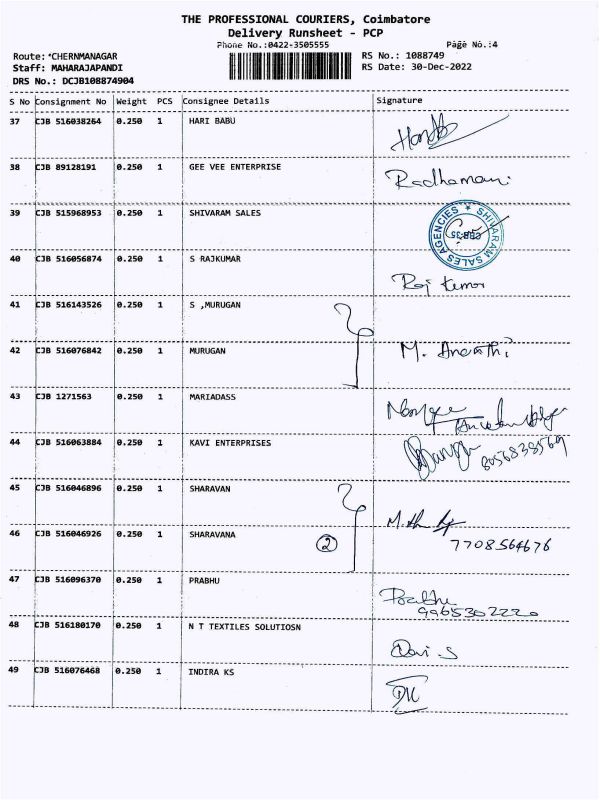 THE PROFESSIONAL COURIERS, Coimbatore
Delivery Runsheet - PCP
Phone No.:0422-3505555 Page No.:4
Route: *CHERNMANAGAR RS No.: 1088749
Staff: MAHARAJAPANDI RS Date: 30-Dec-2022
DRS No.: DCJB108874904
S No Consignment No Weight PCS Consignee Details Signature
37 CJB 516038264 0.250 1 HARI BABU
38 CJB 89128191 0.250 1 GEE VEE ENTERPRISE Radhamani
39 CJB 515968953 0.250 1 SHIVARAM SALES SHIVARAM SALES AGENCIES CBE-35
40 CJB 516056874 0.250 1 S RAJKUMAR Raj Kumar
41 CJB 516143526 0.250 1 S ,MURUGAN
42 CJB 516076842 0.250 1 MURUGAN M.
43 CJB 1271563 0.250 1 MARIADASS
44 CJB 516063884 0.250 1 KAVI ENTERPRISES 8056838569
45 CJB 516046896 0.250 1 SHARAVAN
46 CJB 516046926 0.250 1 SHARAVANA 2 7708564676
47 CJB 516096370 0.250 1 PRABHU 9965302220
48 CJB 516180170 0.250 1 N T TEXTILES SOLUTIOSN
49 CJB 516076468 0.250 1 INDIRA KS